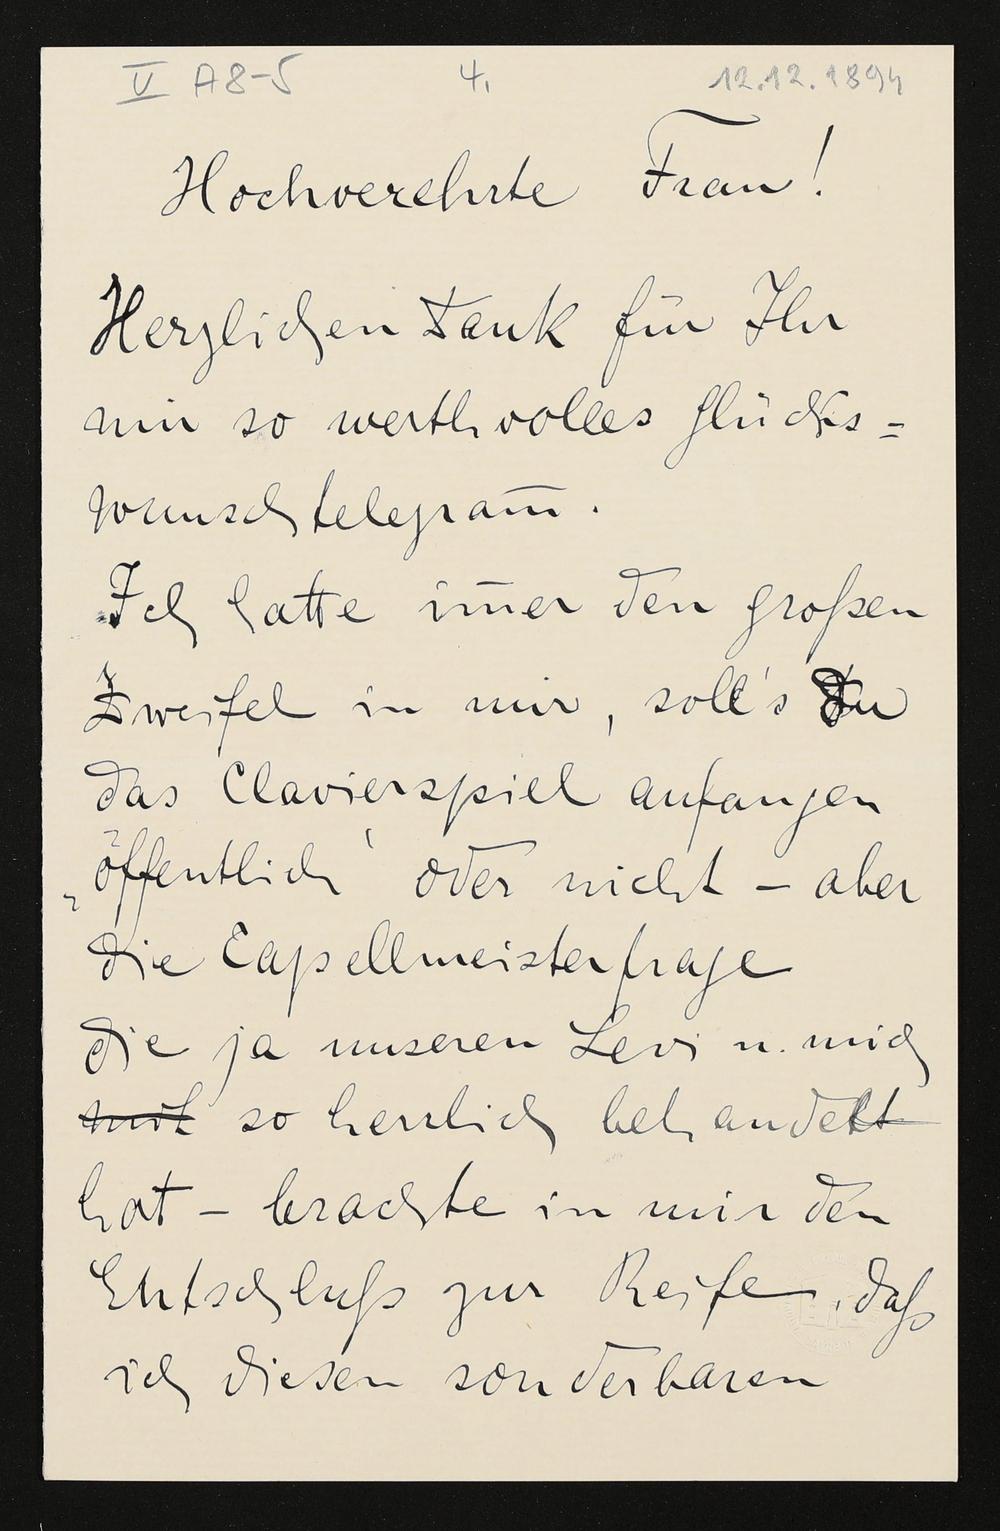 V A8-5 4. 12.12.1894
Hochverehrte Frau!
Herzlichen Dank für Ihr
mir so werthvolles Glücks=
wunschtelegram̄.
Ich hatte im̄er den großen
Zweifel in mir, soll's Du
das Clavierspiel anfangen
„öffentlich' oder nicht – aber
die Capellmeisterfrage
die ja unseren Levi u. mich
so herrlich behandelt
hat – brachte in mir den
Entschluß zur Reife, daß
ich diesen sonderbaren